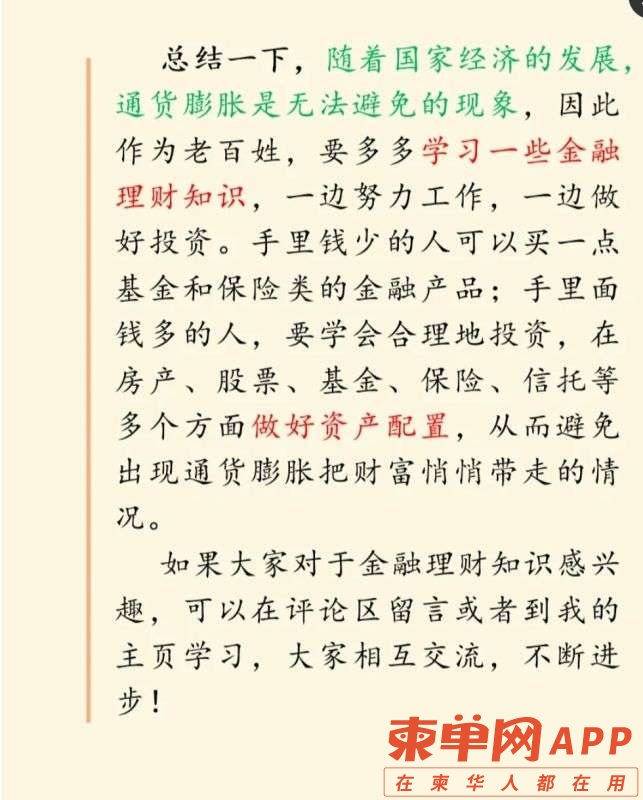 总结一下，随着国家经济的发展，
通货膨胀是无法避免的现象，因此
作为老百姓，要多多学习一些金融
理财知识，一边努力工作，一边做
好投资。手里钱少的人可以买一点
基金和保险类的金融产品；手里面
钱多的人，要学会合理地投资，在
房产、股票、基金、保险、信托等
多个方面做好资产配置，从而避免
出现通货膨胀把财富悄悄带走的情
况。
如果大家对于金融理财知识感兴
趣，可以在评论区留言或者到我的
主页学习，大家相互交流，不断进
步！
柬单网APP
在柬华人都在用